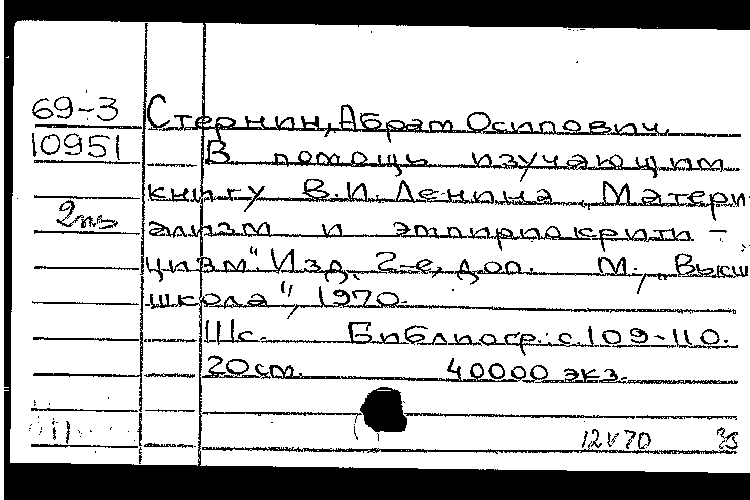 69-3 Стернин, Абрам Осипович.
10951 В помощь изучающим
книгу В.И. Ленина „Матери
ализм и эмпириокрити-
цизм“. Изд. 2-е, доп. М., „Высш
школа“, 1970.
111с. Библиогр.: с. 109-110.
20см. 40000 экз.
12 V 70